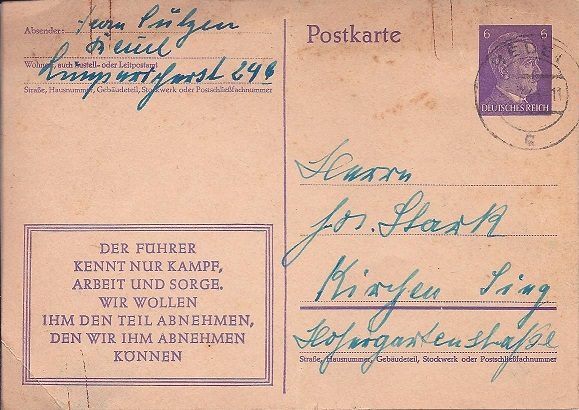 Absender:
Wohnort, auch Zustell- oder Leitpostamt
Straße, Hausnummer, Gebäudeteil, Stockwerk oder Postschließfachnummer
Postkarte
6 6
DEUTSCHES REICH
Herrn
Jos. Stark
Kirchen
Hohergartenstraße
Straße, Hausnummer, Gebäudeteil, Stockwerk oder Postschließfachnummer
DER FÜHRER
KENNT NUR KAMPF,
ARBEIT UND SORGE.
WIR WOLLEN
IHM DEN TEIL ABNEHMEN,
DEN WIR IHM ABNEHMEN
KÖNNEN